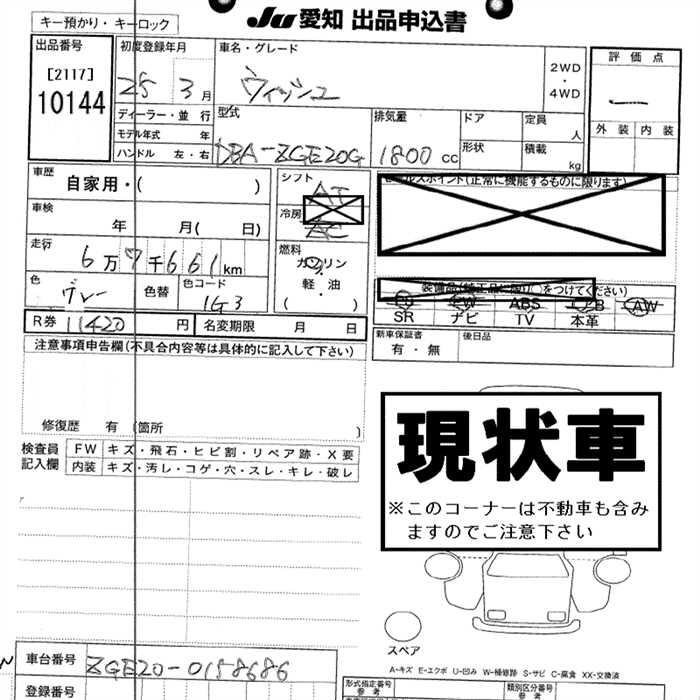 キー預かり・キーロック
JU 愛知 出品申込書
出品番号
[2117]
10144
初度登録年月
25 3月
車名・グレード
ウィッシュ
2WD
・
4WD
評価点
―
外装 内装
ディーラー・並行
モデル年式 年
ハンドル 左・右
型式
DBA-ZGE20G
排気量
1800 cc
ドア
形状
定員
人
積載
kg
車歴
自家用・( )
車検
年 月( 日)
走行
6万7千661km
色
グレー
色替
色コード
1G3
シフト
AT
冷房
AC
燃料
ガソリン
軽・油
( )
セールスポイント(正常に機能するものに限ります)
装備品(純正品に限り○をつけてください)
PS PW ABS エアB AW
SR ナビ TV 本革
新車保証書
有・無
後日品
R券 11420 円
名変期限 月 日
注意事項申告欄(不具合内容等は具体的に記入して下さい)
修復歴 有 (箇所 )
検査員
記入欄
FW キズ・飛石・ヒビ割・リペア跡・X要
内装 キズ・汚レ・コゲ・穴・スレ・キレ・破レ
現状車
※このコーナーは不動車も含み
ますのでご注意下さい
スペア
A-キズ E-エクボ U-凹み W-補修跡 S-サビ C-腐食 XX-交換済
車台番号
ZGE20-0158686
登録番号
形式指定番号
参考
類別区分番号
参考